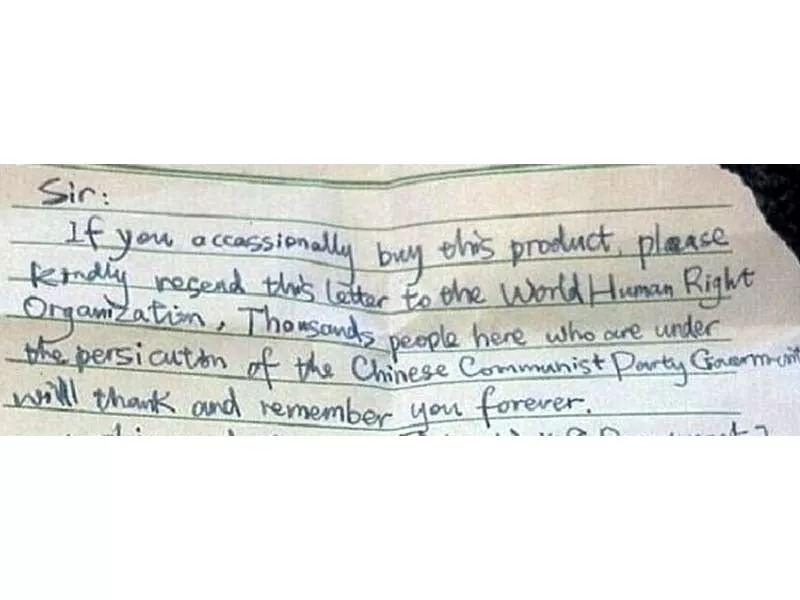 Sir:
If you occassionally buy this product, please
kindly resend this letter to the World Human Right
Organization, Thousands people here who are under
the persicution of the Chinese Communist Party Government
will thank and remember you forever.